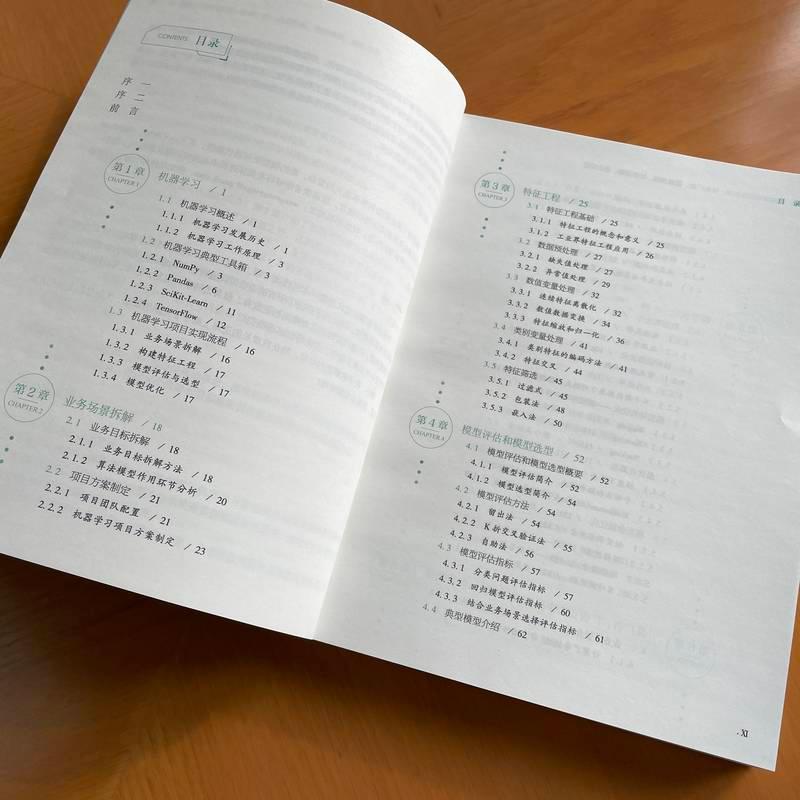 CONTENTS 目录
序 一
序 二
前 言
第1章
CHAPTER 1
机器学习 / 1
1.1 机器学习概述 / 1
1.1.1 机器学习发展历史 / 1
1.1.2 机器学习工作原理 / 3
1.2 机器学习典型工具箱 / 3
1.2.1 NumPy / 3
1.2.2 Pandas / 6
1.2.3 SciKit-Learn / 11
1.2.4 TensorFlow / 12
1.3 机器学习项目实现流程 / 16
1.3.1 业务场景拆解 / 16
1.3.2 构建特征工程 / 17
1.3.3 模型评估与选型 / 17
1.3.4 模型优化 / 17
第2章
CHAPTER 2
业务场景拆解 / 18
2.1 业务目标拆解 / 18
2.1.1 业务目标拆解方法 / 18
2.1.2 算法模型作用环节分析 / 20
2.2 项目方案制定 / 21
2.2.1 项目团队配置 / 21
2.2.2 机器学习项目方案制定 / 23
目 录
第3章
CHAPTER 3
特征工程 / 25
3.1 特征工程基础 / 25
3.1.1 特征工程的概念和意义 / 25
3.1.2 工业界特征工程应用 / 26
3.2 数据预处理 / 27
3.2.1 缺失值处理 / 27
3.2.2 异常值处理 / 29
3.3 数值变量处理 / 32
3.3.1 连续特征离散化 / 32
3.3.2 数值数据变换 / 34
3.3.3 特征缩放和归一化 / 36
3.4 类别变量处理 / 41
3.4.1 类别特征的编码方法 / 41
3.4.2 特征交叉 / 44
3.5 特征筛选 / 45
3.5.1 过滤式 / 45
3.5.2 包装法 / 48
3.5.3 嵌入法 / 50
第4章
CHAPTER 4
模型评估和模型选型 / 52
4.1 模型评估和模型选型概要 / 52
4.1.1 模型评估简介 / 52
4.1.2 模型选型简介 / 54
4.2 模型评估方法 / 54
4.2.1 留出法 / 54
4.2.2 K折交叉验证法 / 55
4.2.3 自助法 / 56
4.3 模型评估指标 / 57
4.3.1 分类问题评估指标 / 57
4.3.2 回归模型评估指标 / 60
4.3.3 结合业务场景选择评估指标 / 61
4.4 典型模型介绍 / 62
· XI